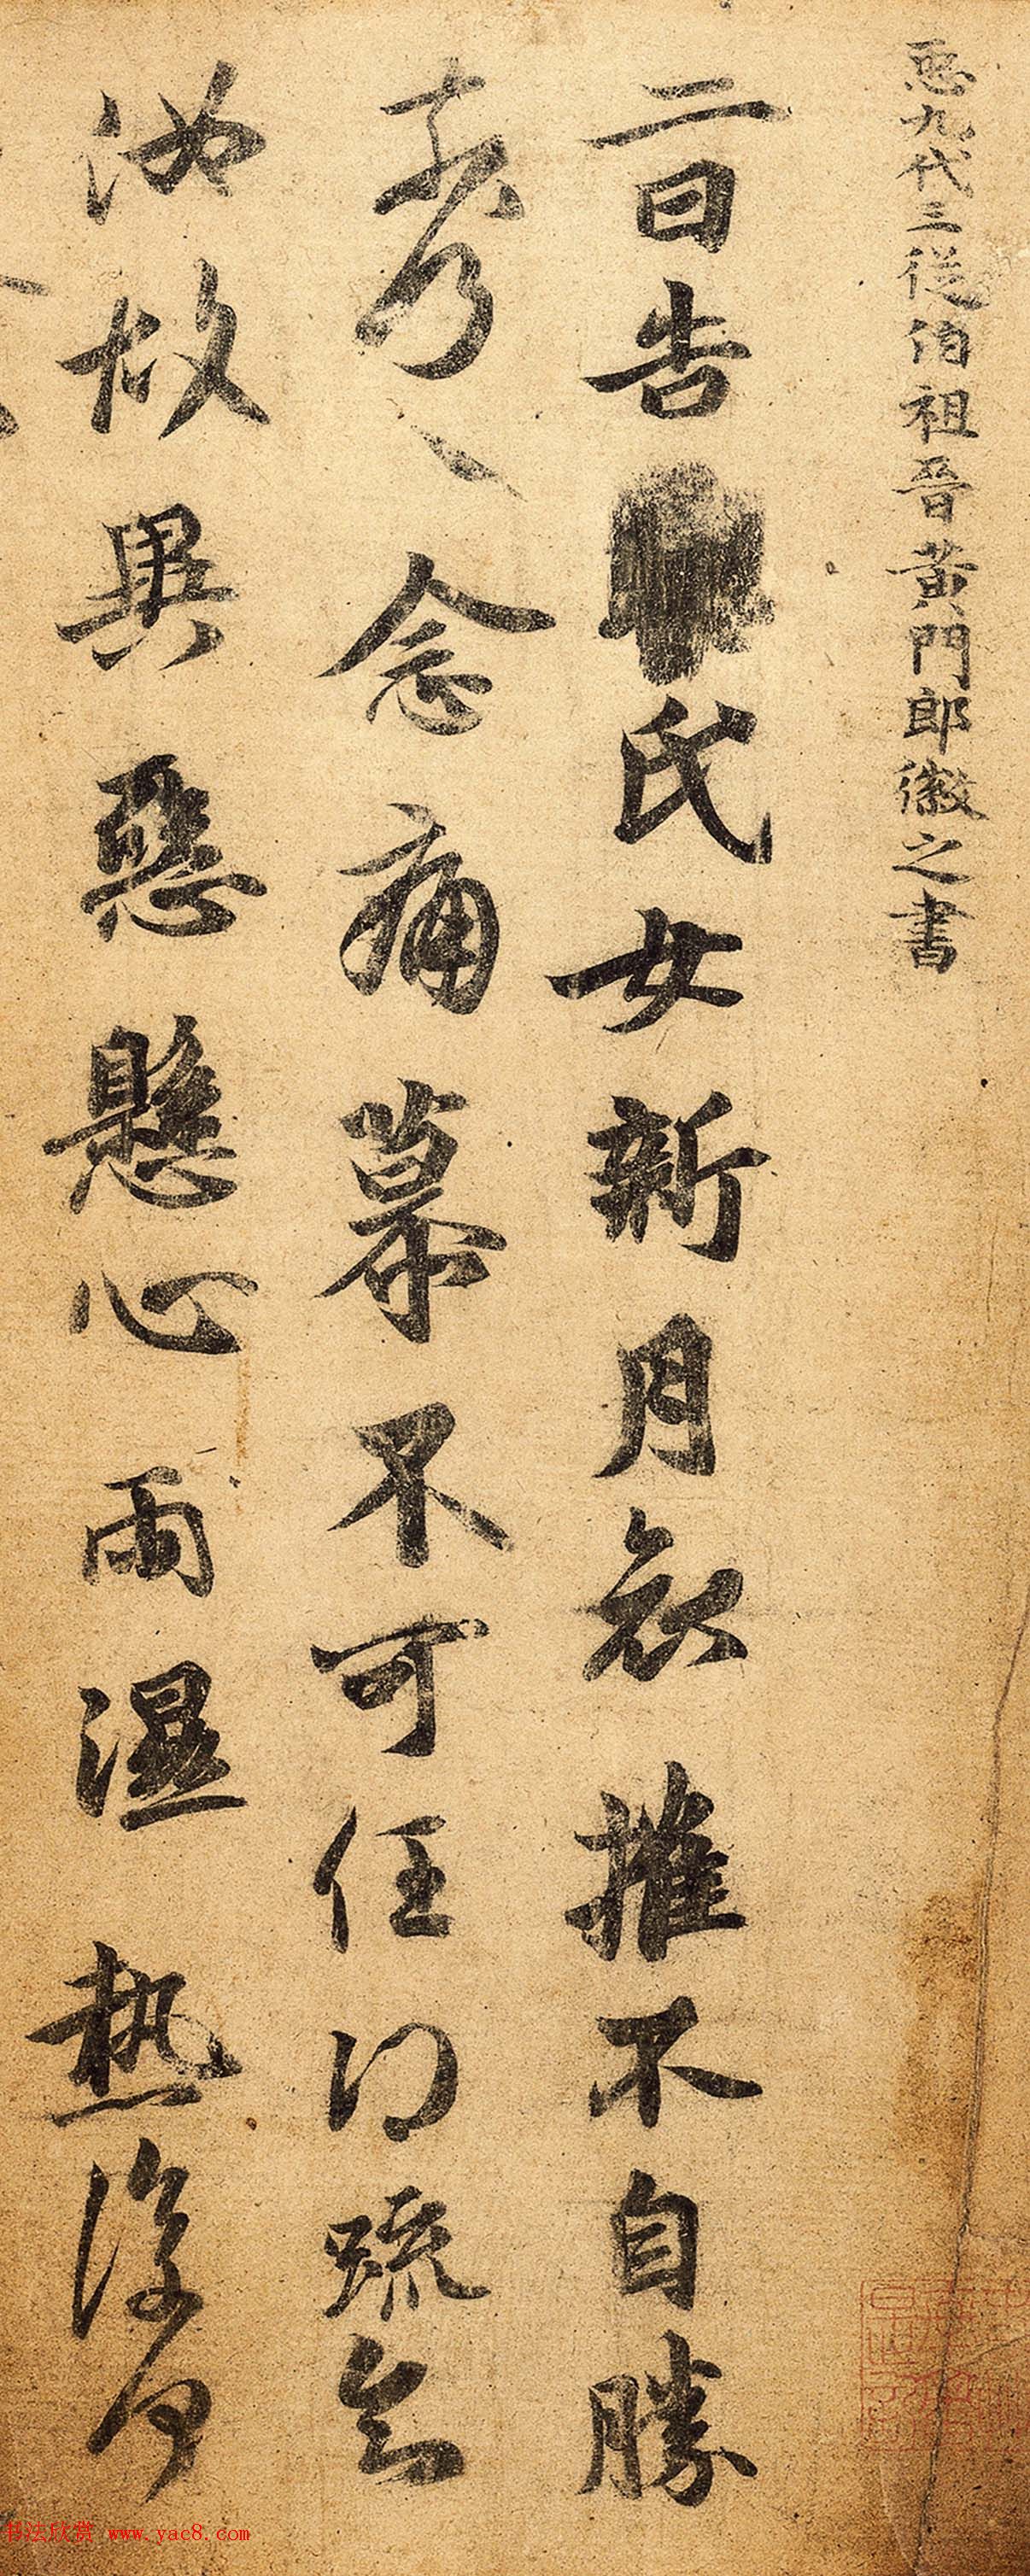 𢘑九代三從伯祖晉黃門郎徽之書
二日告氏女新月哀摧不自勝
奈何〻〻念痛慕不可任得疏知
汝故異惡懸心雨濕熱復何
书法欣赏 www.yac8.com